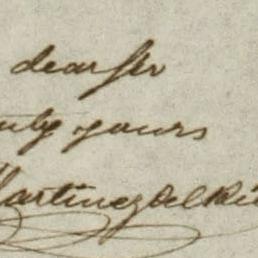 dear sir
truly yours
Martinez del Rio